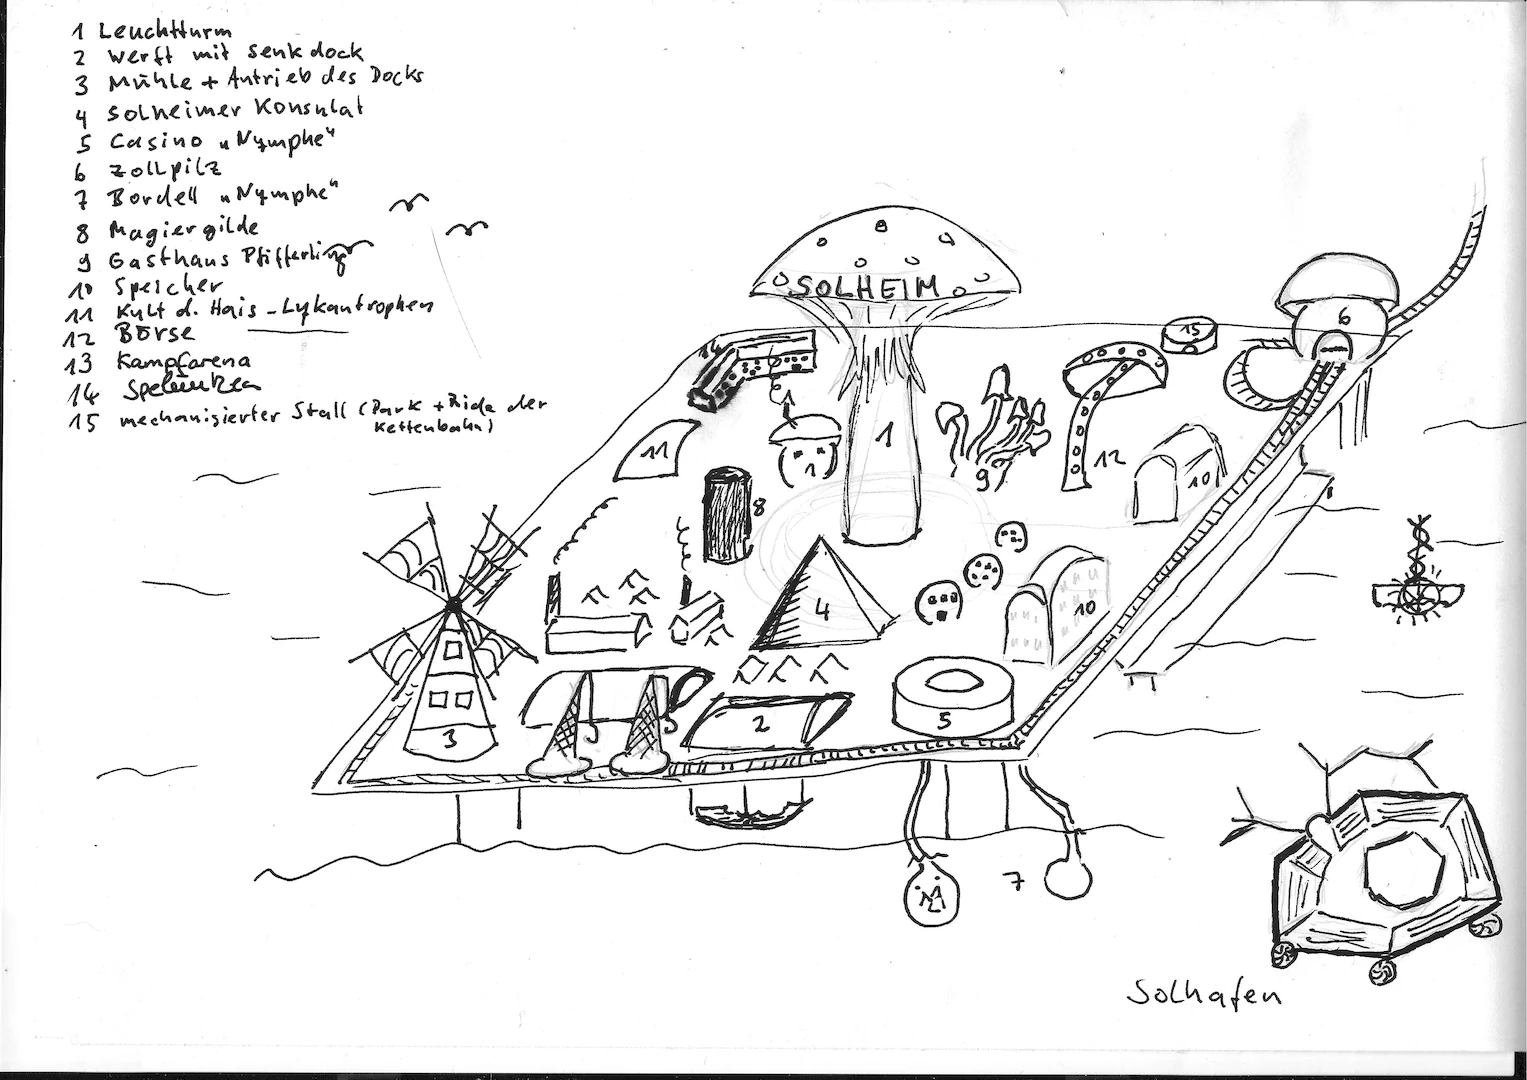 1 Leuchtturm
2 Werft mit Senkdock
3 Mühle + Antrieb des Docks
4 Solheimer Konsulat
5 Casino „Nymphe"
6 Zollpilz
7 Bordell „Nymphe"
8 Magiergilde
9 Gasthaus Pfifferling
10 Speicher
11 Kult d. Hais-Lykantrophen
12 Börse
13 Kampfarena
14 Spelunken
15 mechanisierter Stall (Park + Ride der Kettenbahn)
SOLHEIM
6
15
14
11
1
1
12
9
10
8
4
10
2
5
3
7
Solhafen